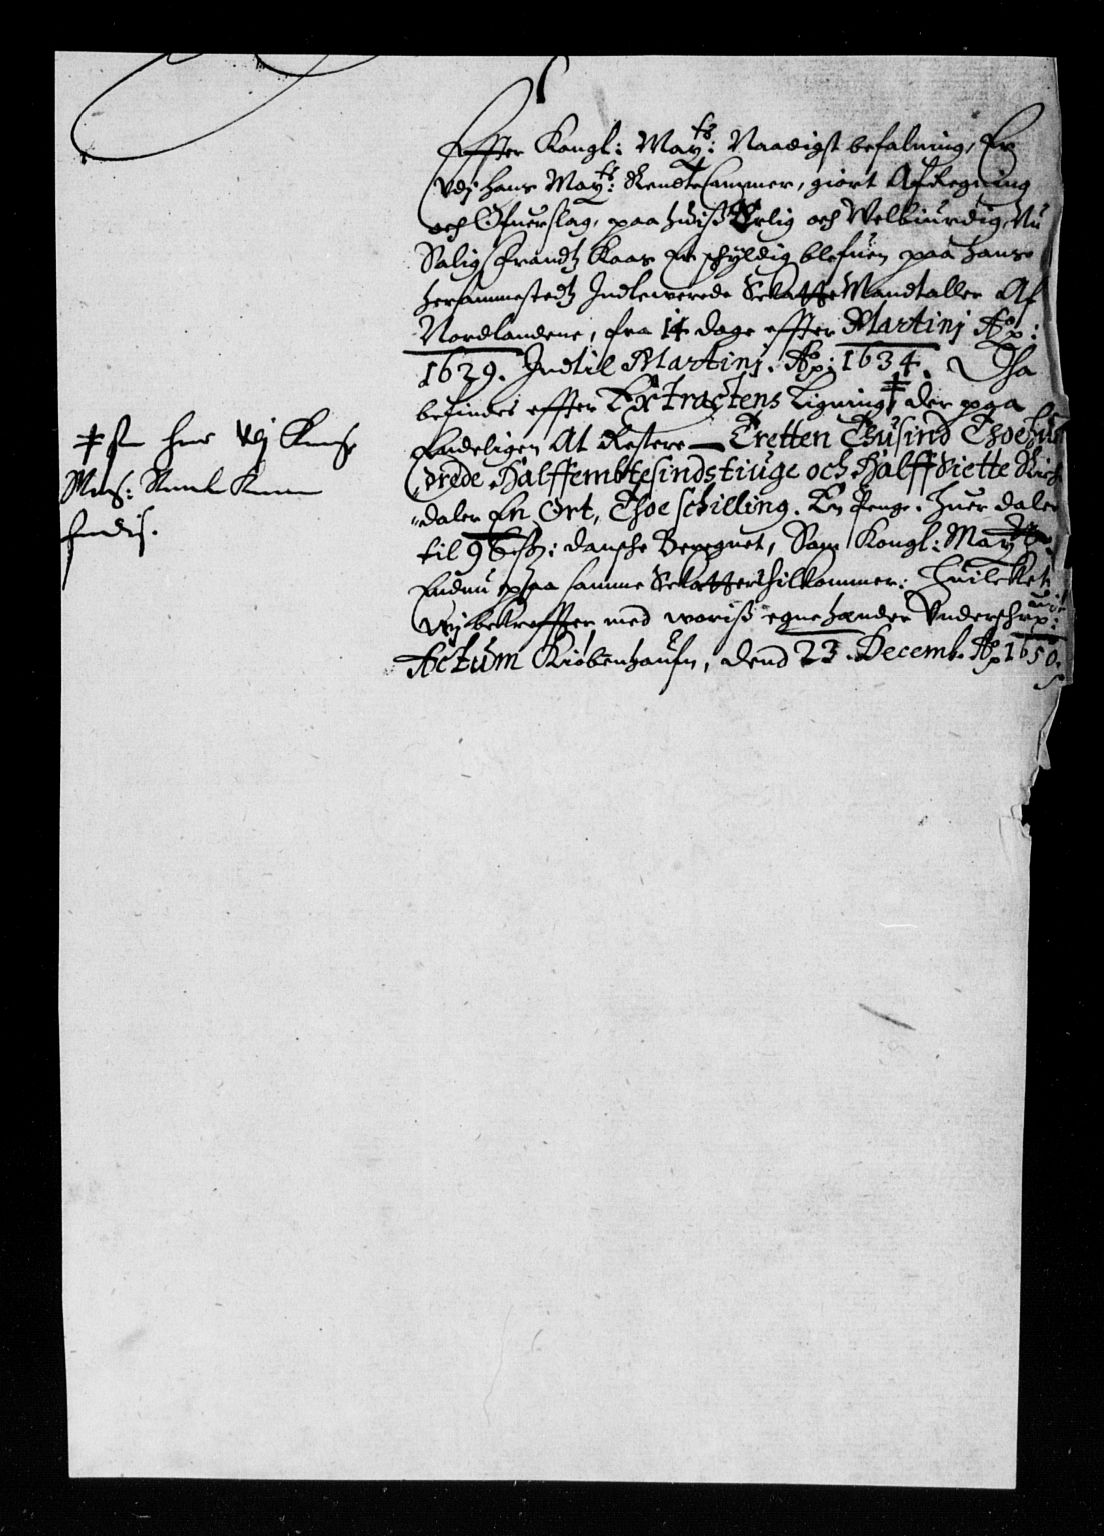 Effter Kongl: May:ts Naadigst befalning, Er
Vdj hans May:ts RendteCammer, giort Afregning
och Ofuerslag, paa huiß Erlig och Welbiurdig, Nu
Salig Frandtz Kaas Er schyldig blefuen paa hans
hersammestedtz Indleuerede Schatte Mandtaller Af
Nordlandene, fra 14 dage effter Martinj Ao:
1629. Indtil Martinj. Ao: 1634. Tha
befindes effter Extractens Ligning ‡ der paa
Endeligen At Restere — Tretten Thusind Thoehun
drede Halffembtesindstiuge och Halff Siette Rich
daler En Ort, Thoe schilling. En Penge. huer daler
til 96 ß: dansche Beregnet, Som Kongl: May:ts
Endnu paa samme Schatter thilkommer: Huilcket
Vij bekreffter med woriß egne hænder Vnderschr:
Actum Kiøbenhaufn, dend 23. Decemb. Ao 1650.
‡ som her vdj Kongl:
May: Rente Kammer
findis.